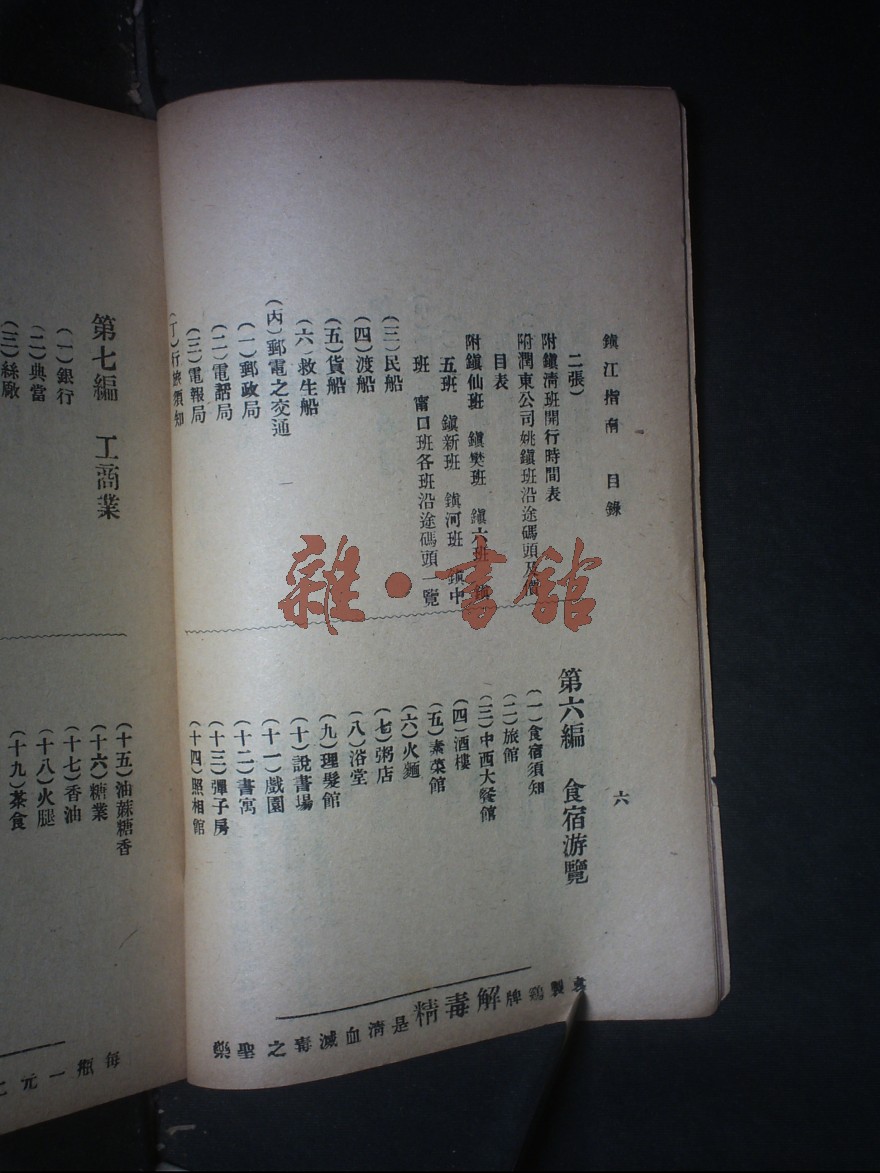 鎮江指南 目錄
六
二張)
附鎮清班開行時間表
附潤東公司姚鎮班沿途碼頭及價
目表
附鎮仙班 鎮樊班 鎮六班 鎮
五班 鎮新班 鎮河班 鎮中
班 甯口班各班沿途碼頭一覽
(三)民船
(四)渡船
(五)貨船
(六)救生船
(丙)郵電之交通
(一)郵政局
(二)電話局
(三)電報局
(丁)行旅須知
第六編 食宿游覽
(一)食宿須知
(二)旅館
(三)中西大餐館
(四)酒樓
(五)素菜館
(六)火麵
(七)粥店
(八)浴堂
(九)理髮館
(十)說書場
(十一)戲園
(十二)書寓
(十三)彈子房
(十四)照相館
袁製鷄牌解毒精是清血滅毒之聖藥
第七編 工商業
(一)銀行
(二)典當
(三)絲廠
(十五)油蔴糖香
(十六)糖業
(十七)香油
(十八)火腿
(十九)茶食
每瓶一元二
雜·書館